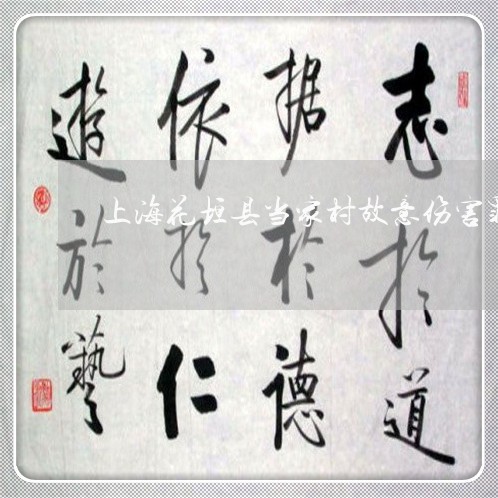 志於道
据於德
依於仁
遊於藝
上海花垣县当家村故意伤害